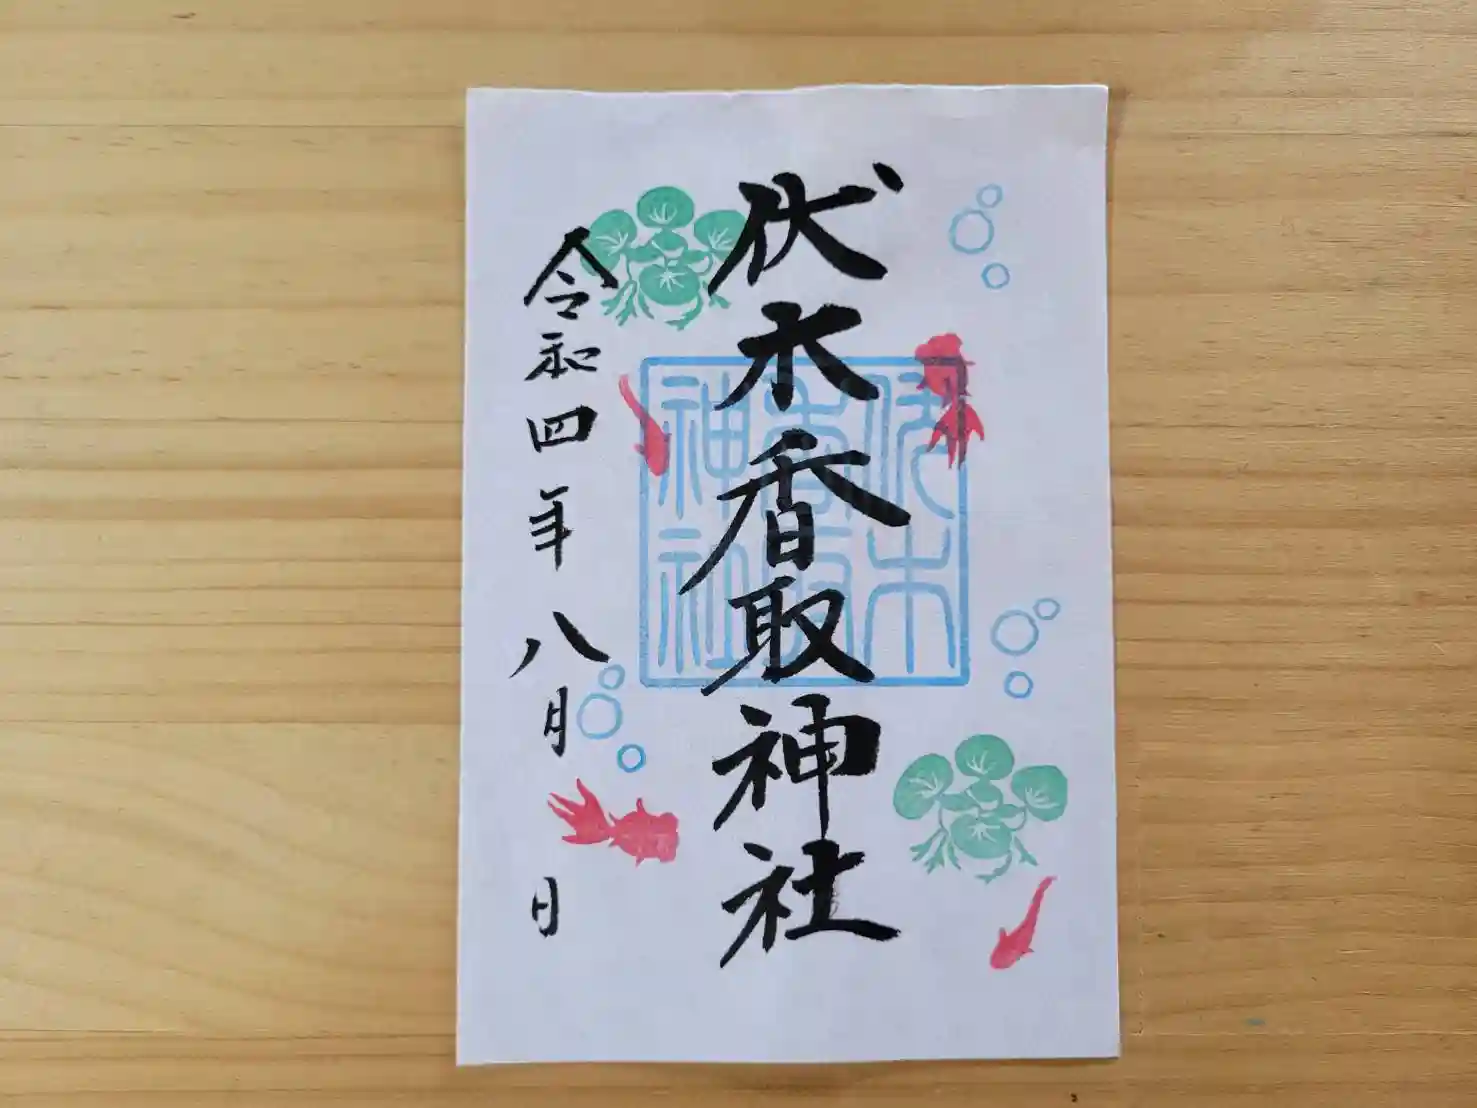 伏木香取神社
令和四年八月 日
伏木
香取
神社